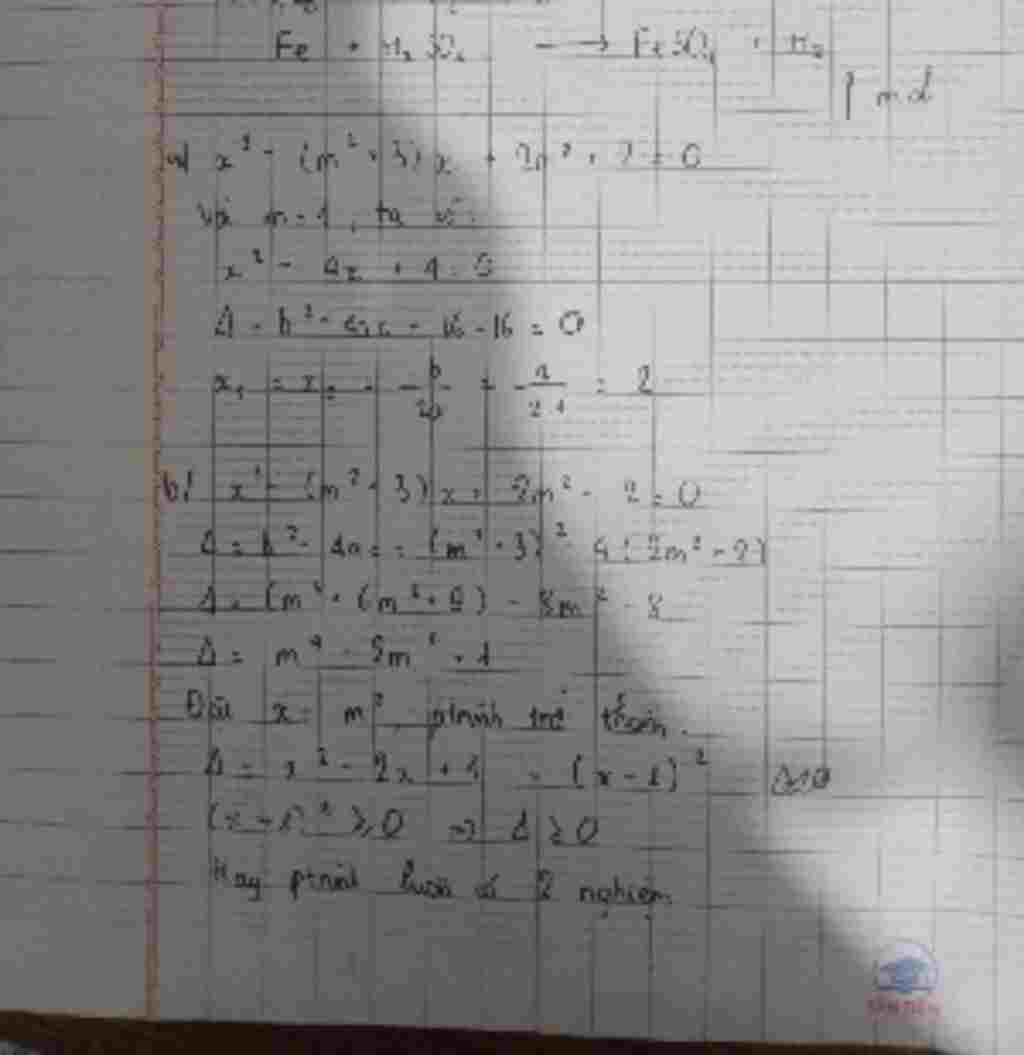 Fe + H₂SO₄ ⟶ FeSO₄ + H₂
1 mol
a) x² - (m² + 3)x + 2m² + 2 = 0
Với m = 1, ta có:
x² - 4x + 4 = 0
Δ = b² - 4ac = 16 - 16 = 0
x₁ = x₂ = -b/2a = 4/2.1 = 2
b) x² - (m² + 3)x + 2m² + 2 = 0
Δ = b² - 4ac = (m² + 3)² - 4(2m² + 2)
Δ = m⁴ - 2m² + 1
Đặt x = m², ptrình trở thành.
Δ = x² - 2x + 1 = (x - 1)² Δ≥0
(x - 1)² ≥ 0 => Δ ≥ 0
Hay ptrình luôn có 2 nghiệm